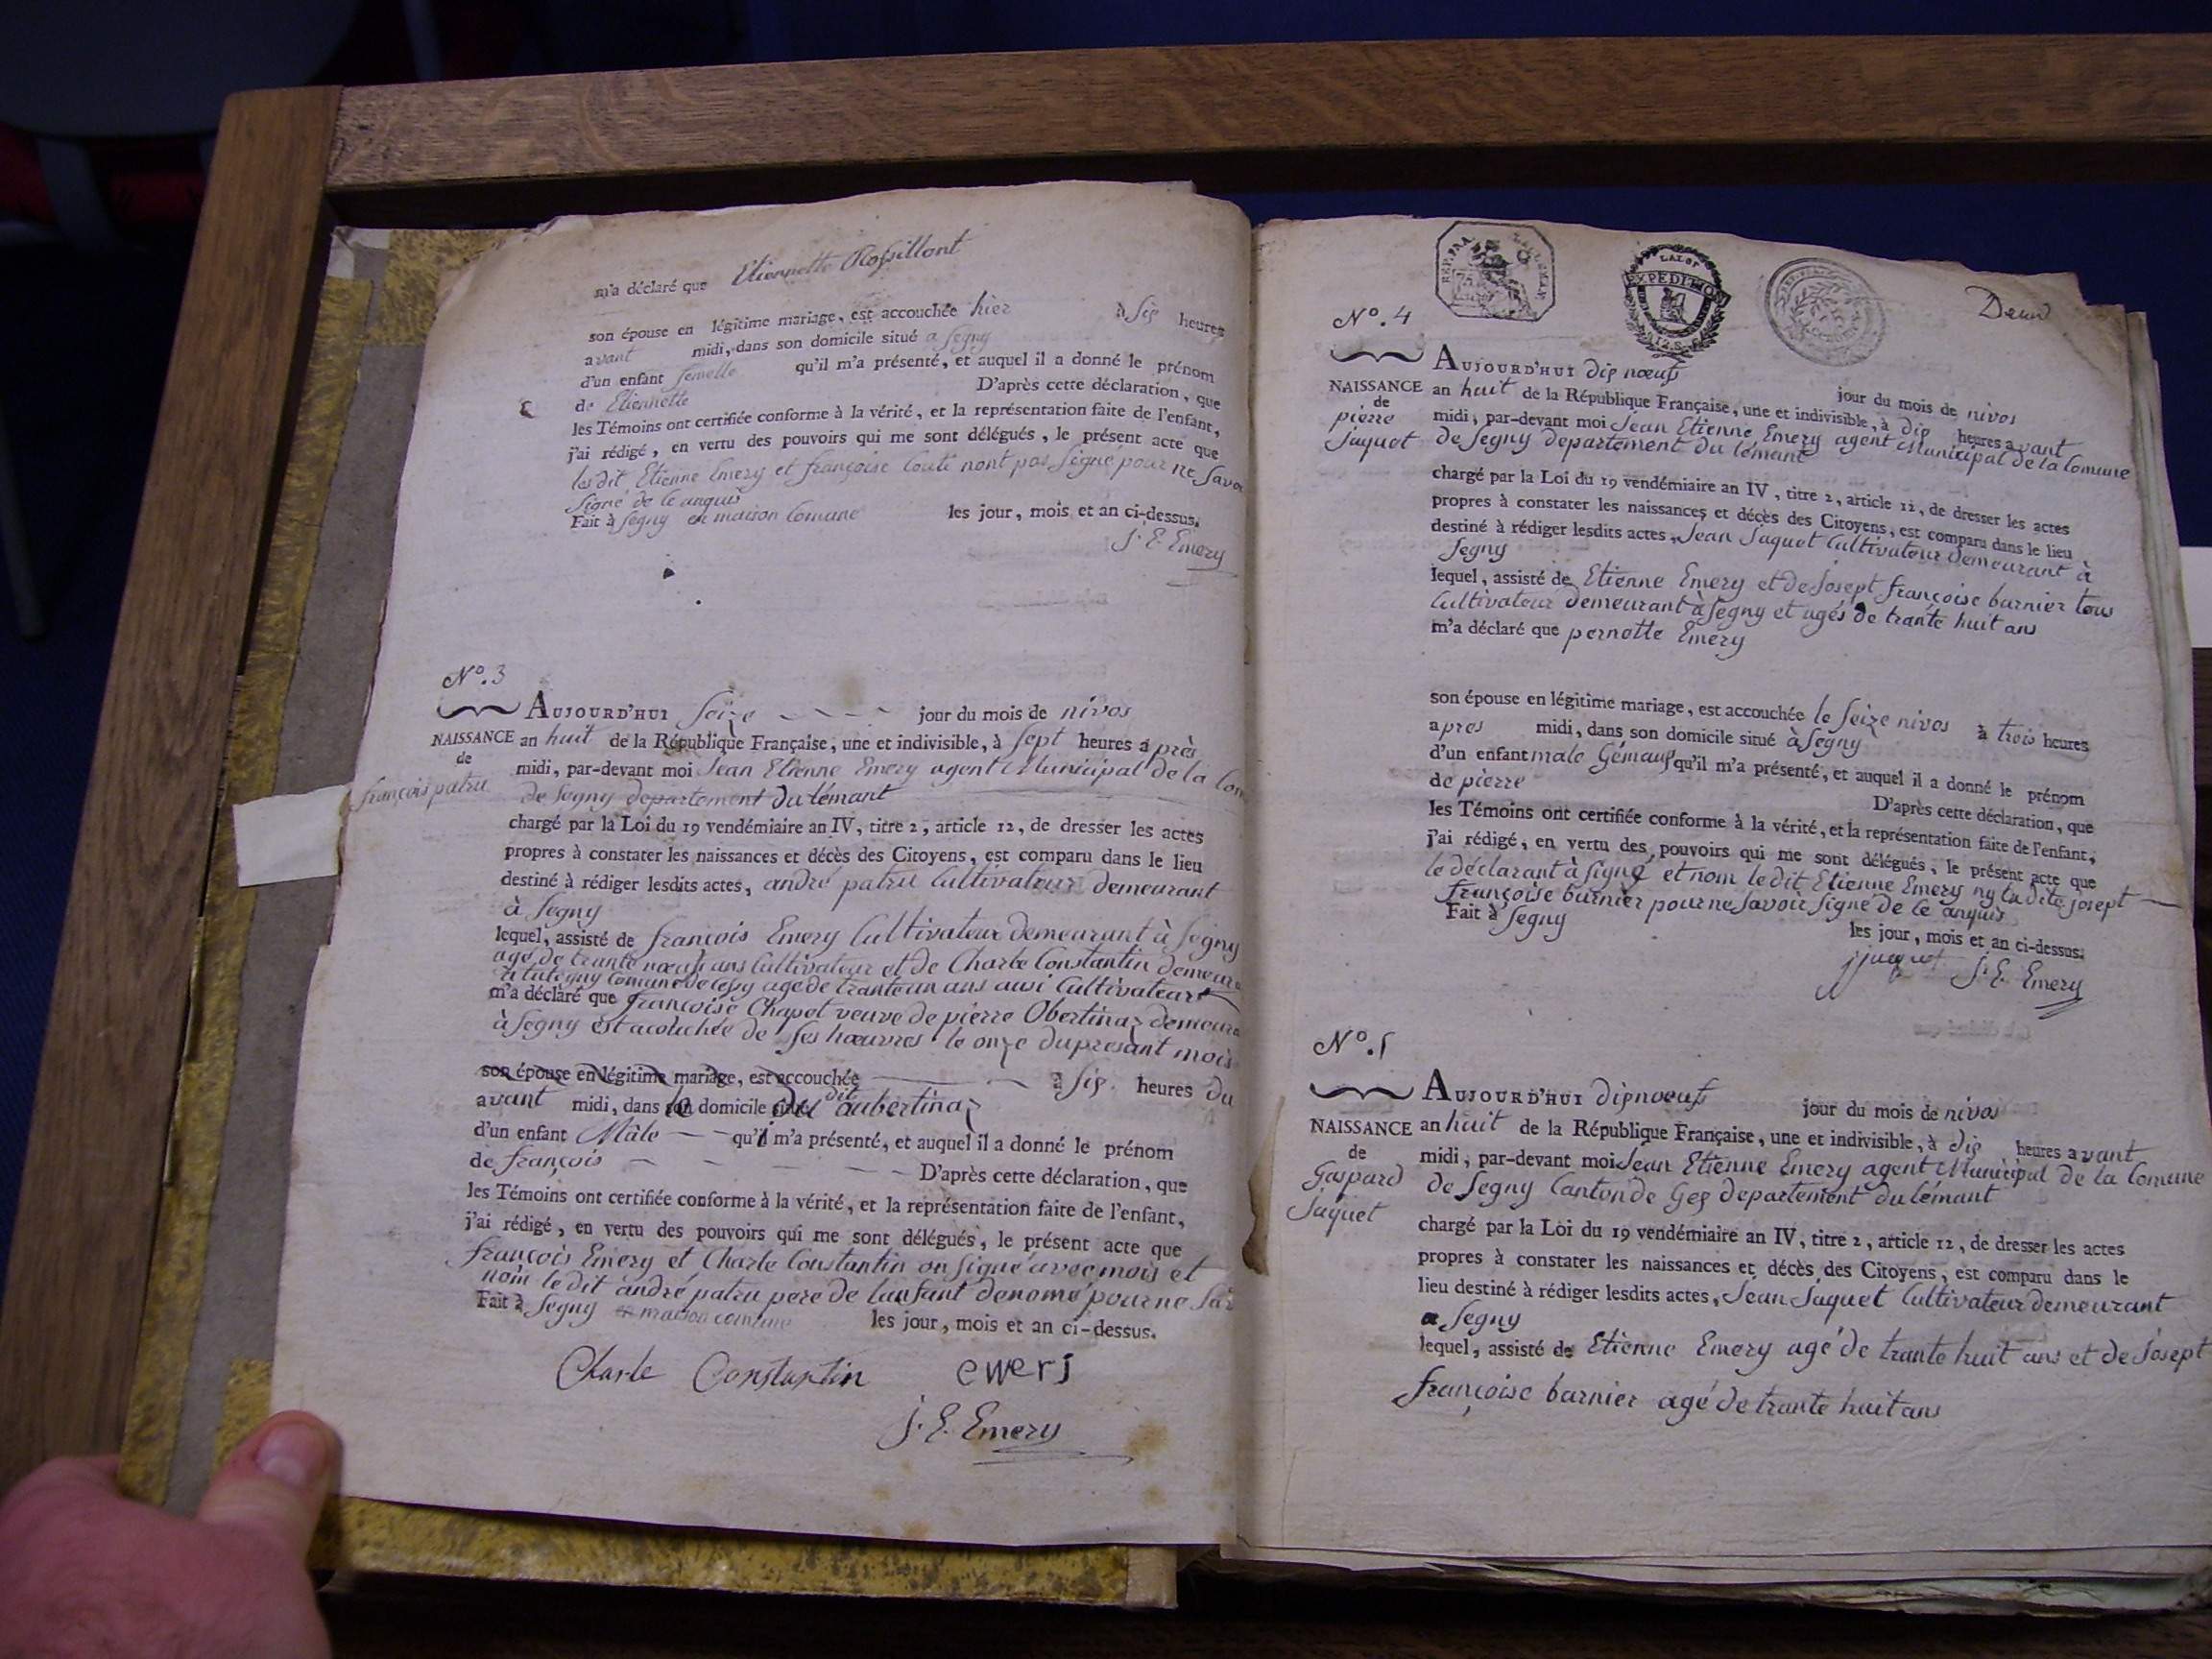 m'a déclaré que Etiennette Rossillont
son épouse en légitime mariage, est accouchée hier à six heures
avant midi, dans son domicile situé a segny
d'un enfant femelle qu'il m'a présenté, et auquel il a donné le prénom
de Etiennette D'après cette déclaration, que
les Témoins ont certifiée conforme à la vérité, et la représentation faite de l'enfant,
j'ai rédigé, en vertu des pouvoirs qui me sont délégués, le présent acte que
les dit Etienne Emery et françoise nont pas signe pour ne savoi
signé de le anquis
Fait à segny en maison Comune les jour, mois et an ci-dessus.
J. E. Emery
N°. 3
AUJOURD'HUI seize jour du mois de nivos
NAISSANCE an huit de la République Française, une et indivisible, à sept heures après
de
françois patru
midi, par-devant moi Jean Etienne Emery agent Municipal de la Com
de Segny departement du lémant
chargé par la Loi du 19 vendémiaire an IV, titre 2, article 12, de dresser les actes
propres à constater les naissances et décès des Citoyens, est comparu dans le lieu
destiné à rédiger lesdits actes, andré patru Cultivateur demeurant
à Segny
lequel, assisté de françois Emery Cultivateur demeurant à Segny
agé de trante nœuf ans Cultivateur et de Charle Constantin demeura
Comune de agé de trante un ans ausi Cultivateurs
m'a déclaré que françoise Chapot veuve de pierre Obertinaz demeura
à Segny est acouchée de ses hœuvres le onze du presant mois
son épouse en légitime mariage, est accouchée à six heures du
avant midi, dans le domicile situé du dit aubertinaz
d'un enfant Mâle qu'il m'a présenté, et auquel il a donné le prénom
de françois D'après cette déclaration, que
les Témoins ont certifiée conforme à la vérité, et la représentation faite de l'enfant,
j'ai rédigé, en vertu des pouvoirs qui me sont délégués, le présent acte que
françois Emery et Charle Constantin on signé avec mois et
nom le dit andré patru pere de lanfant denomé pour ne sa
Fait à Segny maison comune les jour, mois et an ci-dessus.
Charle Constantin emerj
J. E. Emery
REP. FRA.
LA LOI
EXPEDITION
N°. 4
AUJOURD'HUI dix nœufs jour du mois de nivos
NAISSANCE an huit de la République Française, une et indivisible, à dix heures avant
de
pierre
Jaquet
midi, par-devant moi Jean Etienne Emery agent Municipal de la Comune
de Segny departement du lémant
chargé par la Loi du 19 vendémiaire an IV, titre 2, article 12, de dresser les actes
propres à constater les naissances et décès des Citoyens, est comparu dans le lieu
destiné à rédiger lesdits actes, Jean Jaquet Cultivateur demeurant à
Segny
lequel, assisté de Etienne Emery et de Josept françoise burnier tous
Cultivateur demeurant à Segny et agés de trante huit ans
m'a déclaré que pernette Emery
son épouse en légitime mariage, est accouchée le seize nivos à trois heures
apres midi, dans son domicile situé à Segny
d'un enfant male Gémaux qu'il m'a présenté, et auquel il a donné le prénom
de pierre D'après cette déclaration, que
les Témoins ont certifiée conforme à la vérité, et la représentation faite de l'enfant,
j'ai rédigé, en vertu des pouvoirs qui me sont délégués, le présent acte que
le déclarant à signé et nom le dit Etienne Emery ny la dite josept
françoise burnier pour ne savoir signé de le anquis
Fait à Segny les jour, mois et an ci-dessus.
jjaquet J. E. Emery
N°. 5
AUJOURD'HUI dixnœufs jour du mois de nivos
NAISSANCE an huit de la République Française, une et indivisible, à dix heures avant
de
Gaspard
Jaquet
midi, par-devant moi Jean Etienne Emery agent Municipal de la Comune
de Segny Canton de Gex departement du lémant
chargé par la Loi du 19 vendémiaire an IV, titre 2, article 12, de dresser les actes
propres à constater les naissances et décès des Citoyens, est comparu dans le
lieu destiné à rédiger lesdits actes, Jean Jaquet Cultivateur demeurant
a Segny
lequel, assisté de Etienne Emery agé de trante huit ans et de Josept
françoise burnier agé de trante huit ans